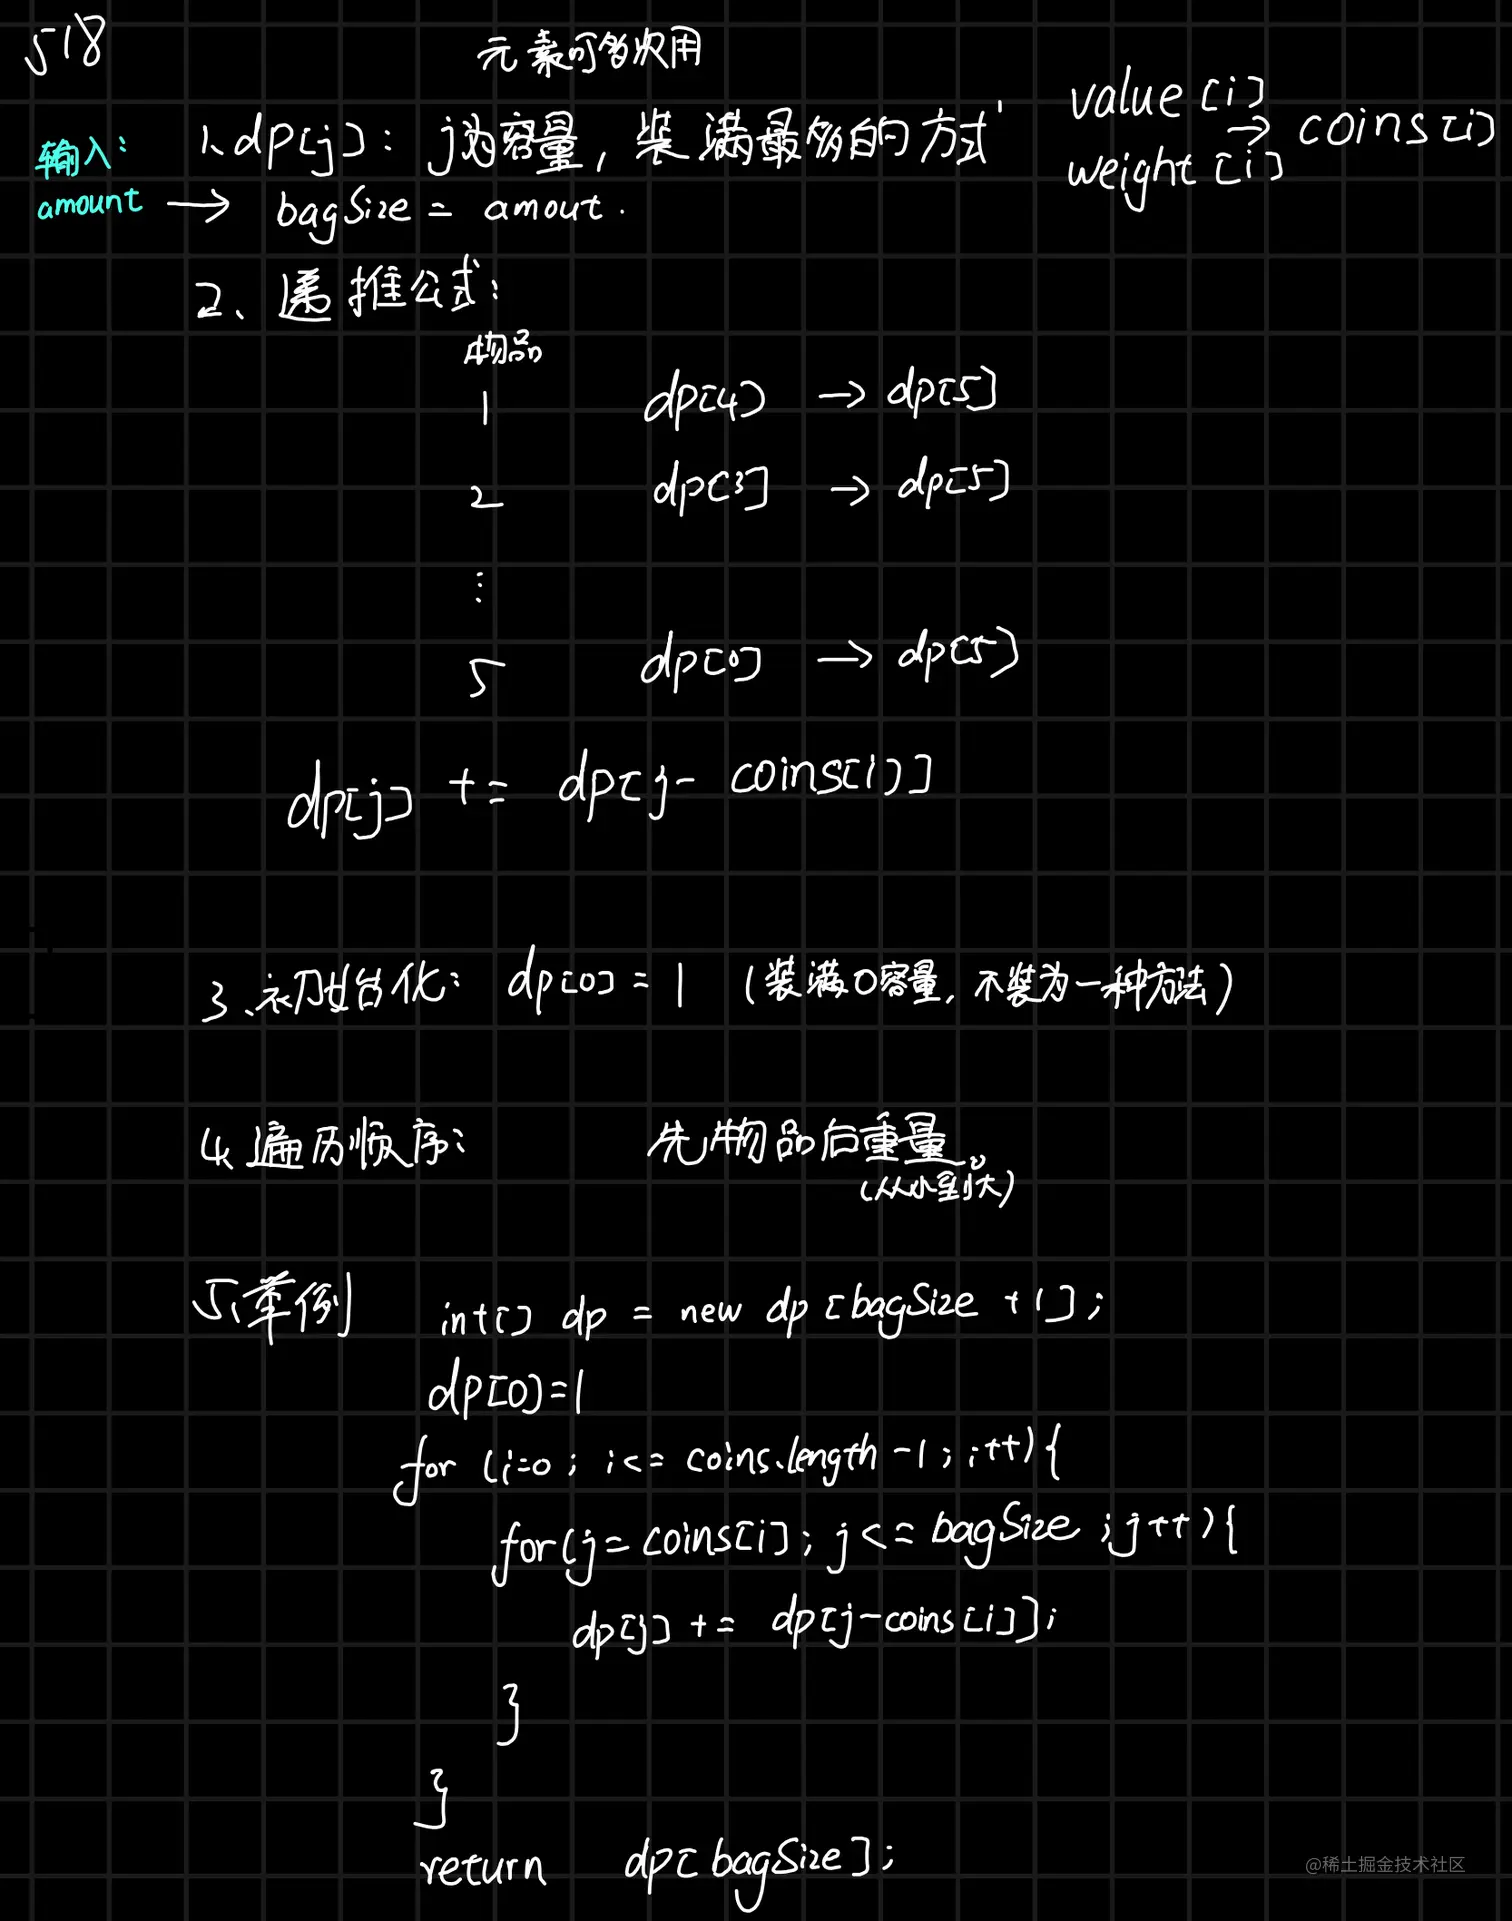 518
元素可多次用
value[i]
→ coins[i]
weight[i]
输入:
amount → bagSize = amout.
1、dp[j]: j为容量, 装满最多的方式
2、递推公式:
物品
1 dp[4] → dp[5]
2 dp[3] → dp[5]
⋮
5 dp[0] → dp[5]
dp[j] += dp[j- coins[i]]
3、初始化: dp[0] = 1 (装满0容量, 不装为一种方法)
4、遍历顺序: 先物品后重量
(从小到大)
5、举例 int[] dp = new dp[bagSize +1];
dp[0]=1
for (i=0; i<= coins.length -1; i++){
for(j=coins[i]; j<=bagSize; j++){
dp[j] += dp[j-coins[i]];
}
}
return dp[bagSize];
@稀土掘金技术社区